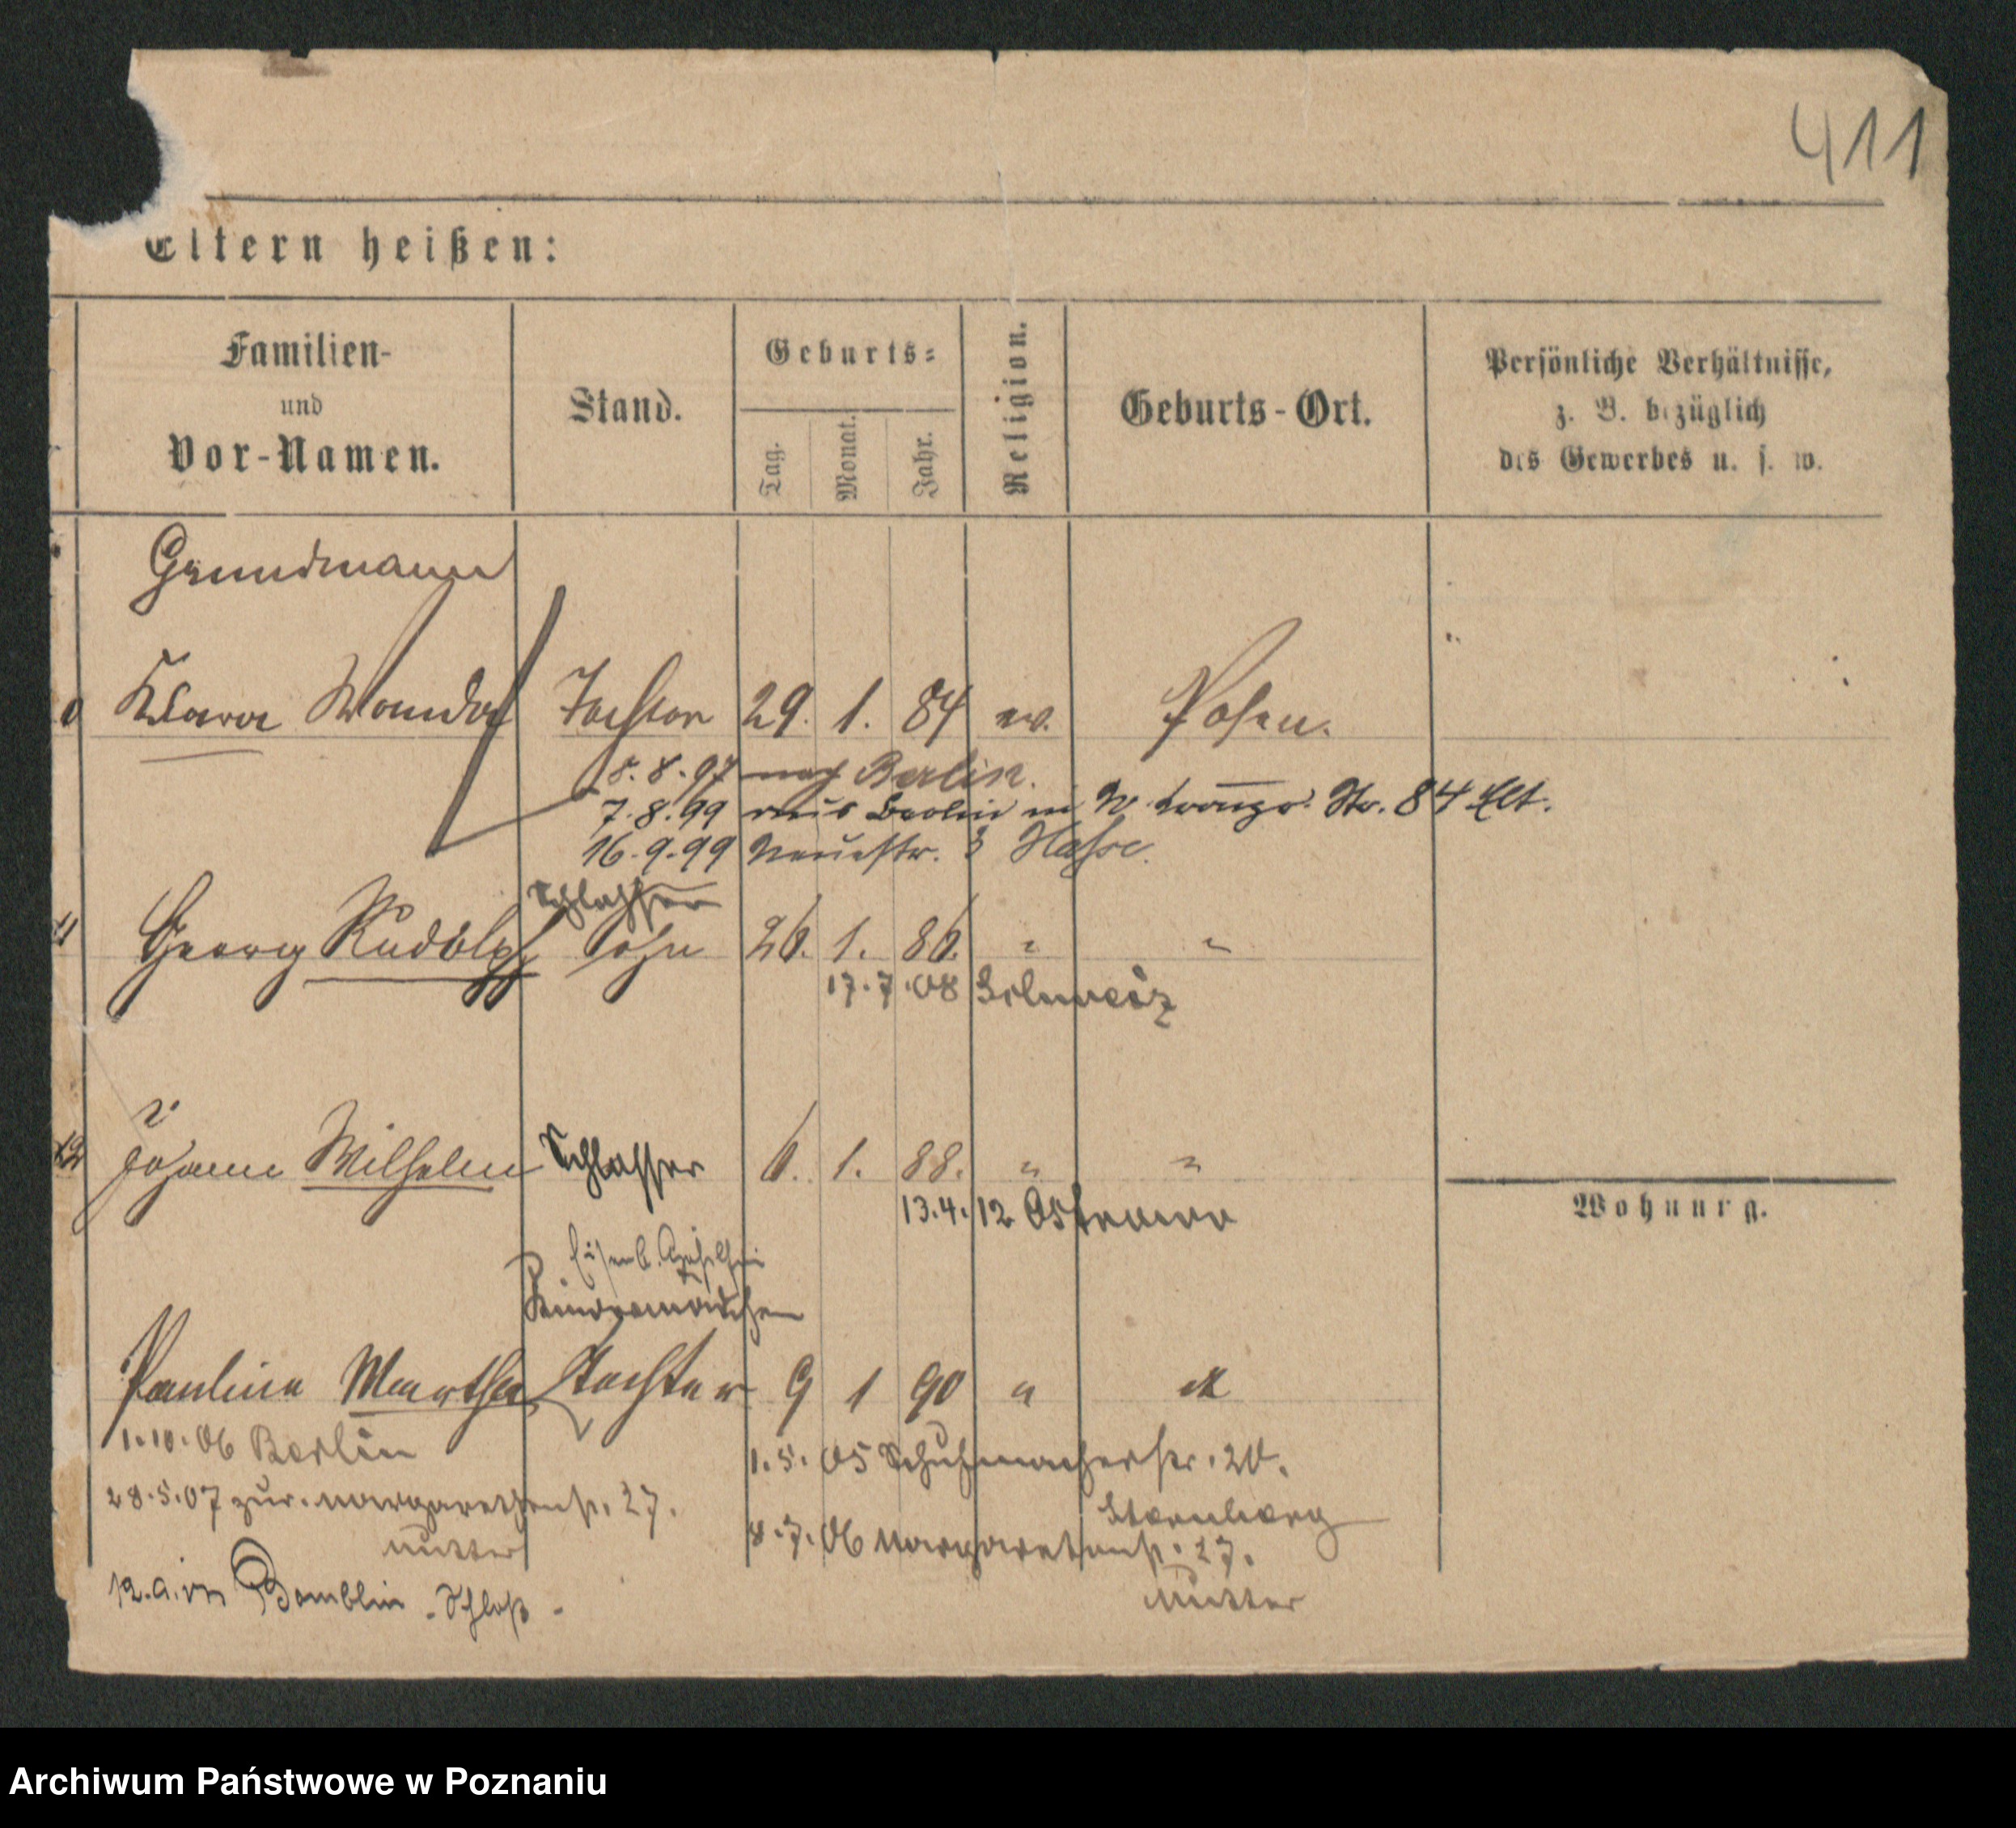 411
Eltern heißen:
Familien- und Vor-Namen.
Stand.
Geburts-
Tag.
Monat.
Jahr.
Religion.
Geburts-Ort.
Persönliche Verhältnisse,
z. B. bezüglich
des Gewerbes u. s. w.
Grundmann
Klara Wanda Tochter 29. 1. 84 ev. Posen.
8. 97 nach Berlin.
7. 8. 99 aus Berlin Str. 84
16. 9. 99 Neuestr. 3 Hasse.
Schlosser
11 Georg Rudolph Sohn 26. 1. 86. " "
17. 7. 08 Schweiz
12 Johann Wilhelm Schlosser 6. 1. 88. " "
13. 4. 12 Ostrowo
Wohnung.
Eisenb. Gehilfin
Kindermädchen
Paulina Martha Tochter 9 1 90 "
1. 10. 06 Berlin
1. 5. 05 Schuhmacherstr. 20.
Sternberg
28. 5. 07 zur. Margarethenstr. 27.
Mutter
8. 7. 06 Margarethenstr. 27.
Mutter
Schloß
Archiwum Państwowe w Poznaniu